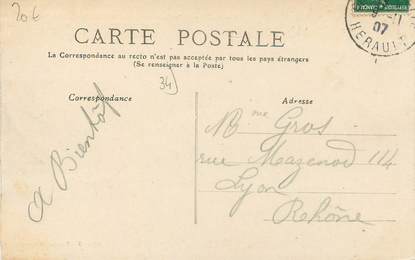 20€
CARTE POSTALE
La Correspondance au recto n'est pas acceptée par tous les pays étrangers
(Se renseigner à la Poste)
34
Correspondance
Adresse
A Bientôt
Mme Gros
rue Mazenod 114
Lyon
Rhône
07
HERAULT